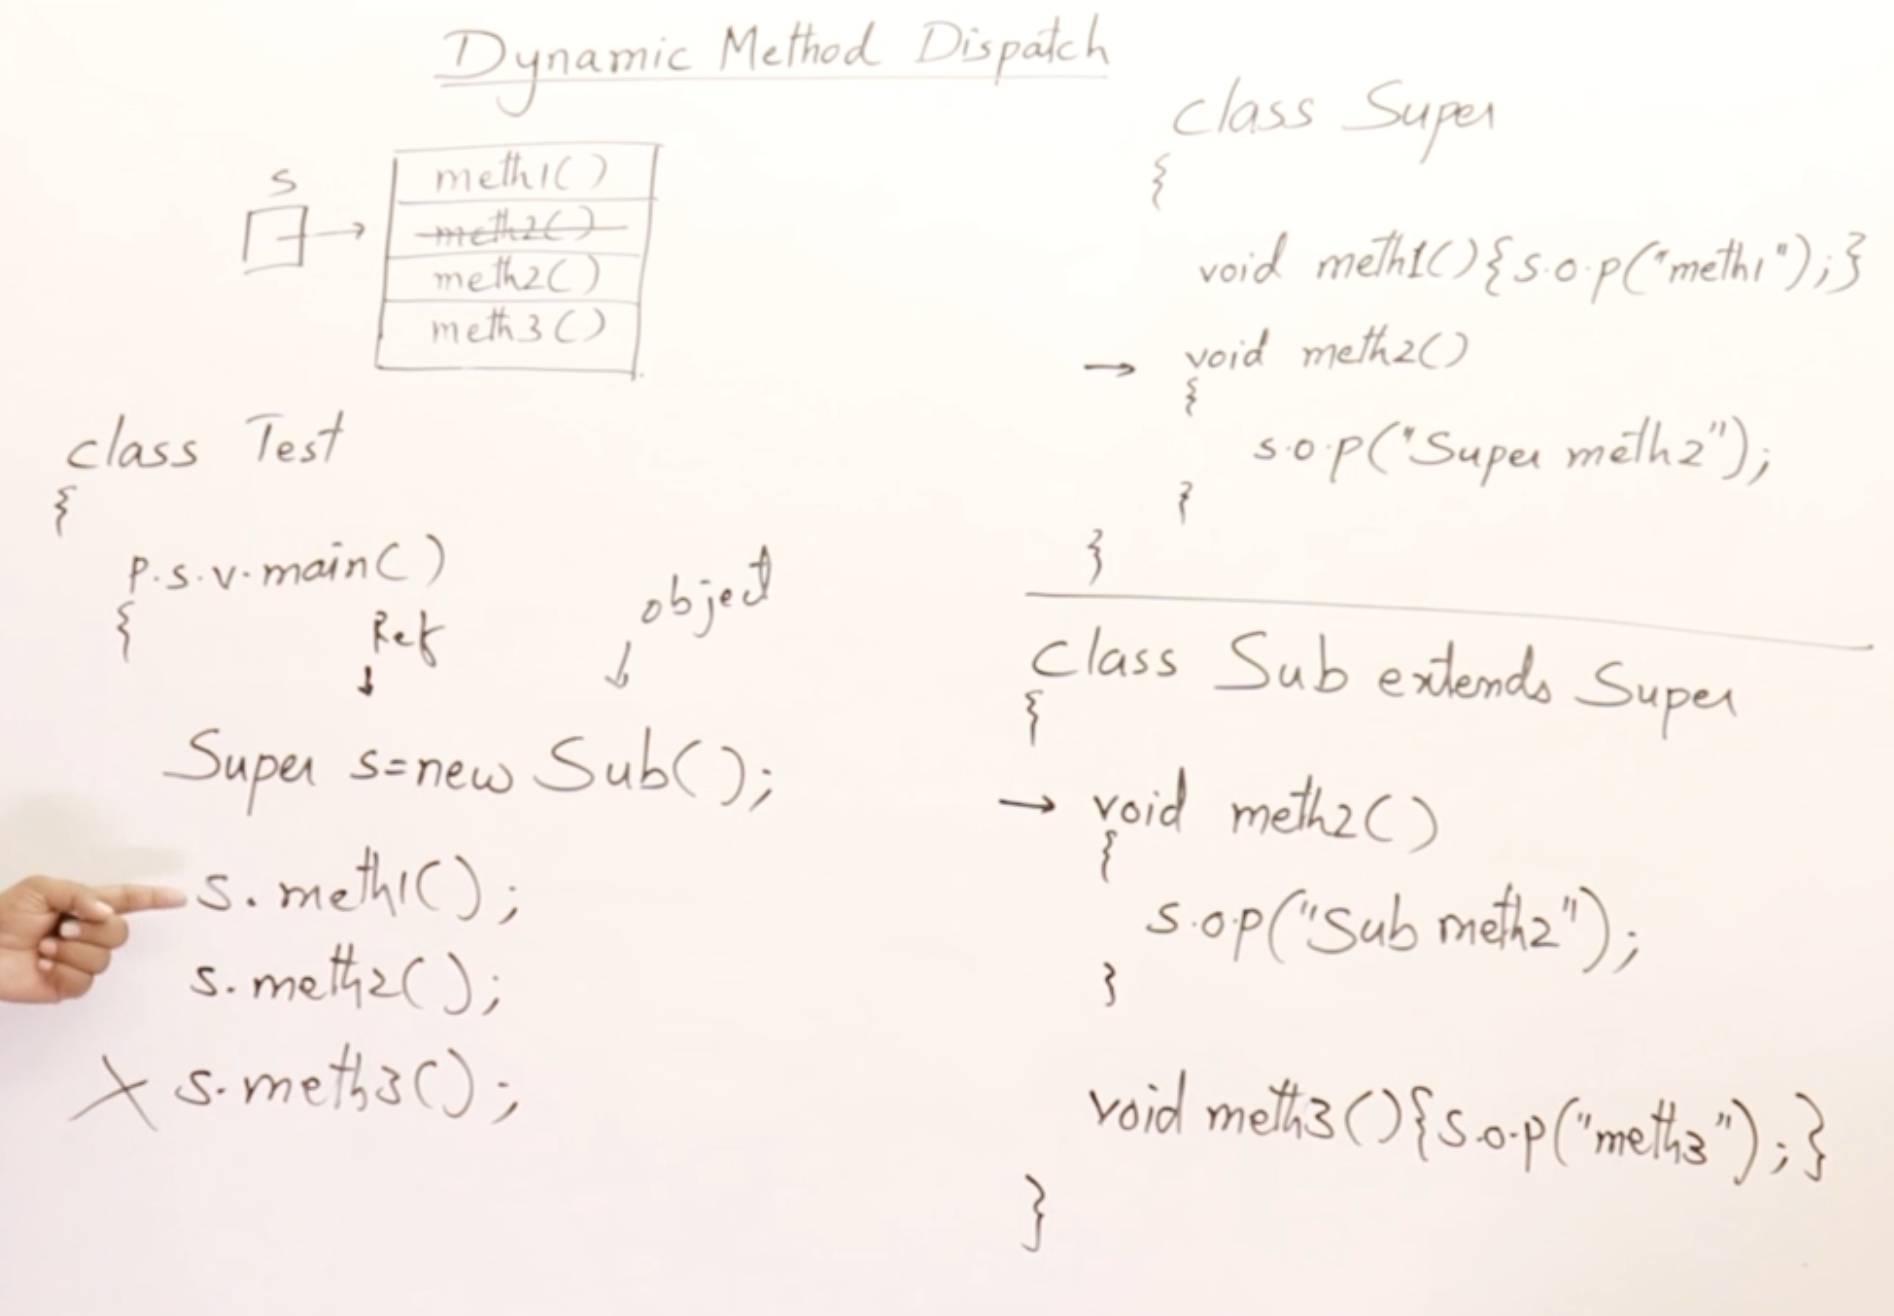 Dynamic Method Dispatch
s
meth1()
meth2()
meth2()
meth3()
class Test
{
p.s.v.main()
{
Ref
object
Super s=new Sub();
s.meth1();
s.meth2();
X s.meth3();
class Super
{
void meth1(){s.o.p("meth1");}
→ void meth2()
{
s.o.p("Super meth2");
}
}
class Sub extends Super
{
→ void meth2()
{
s.o.p("Sub meth2");
}
void meth3(){s.o.p("meth3");}
}